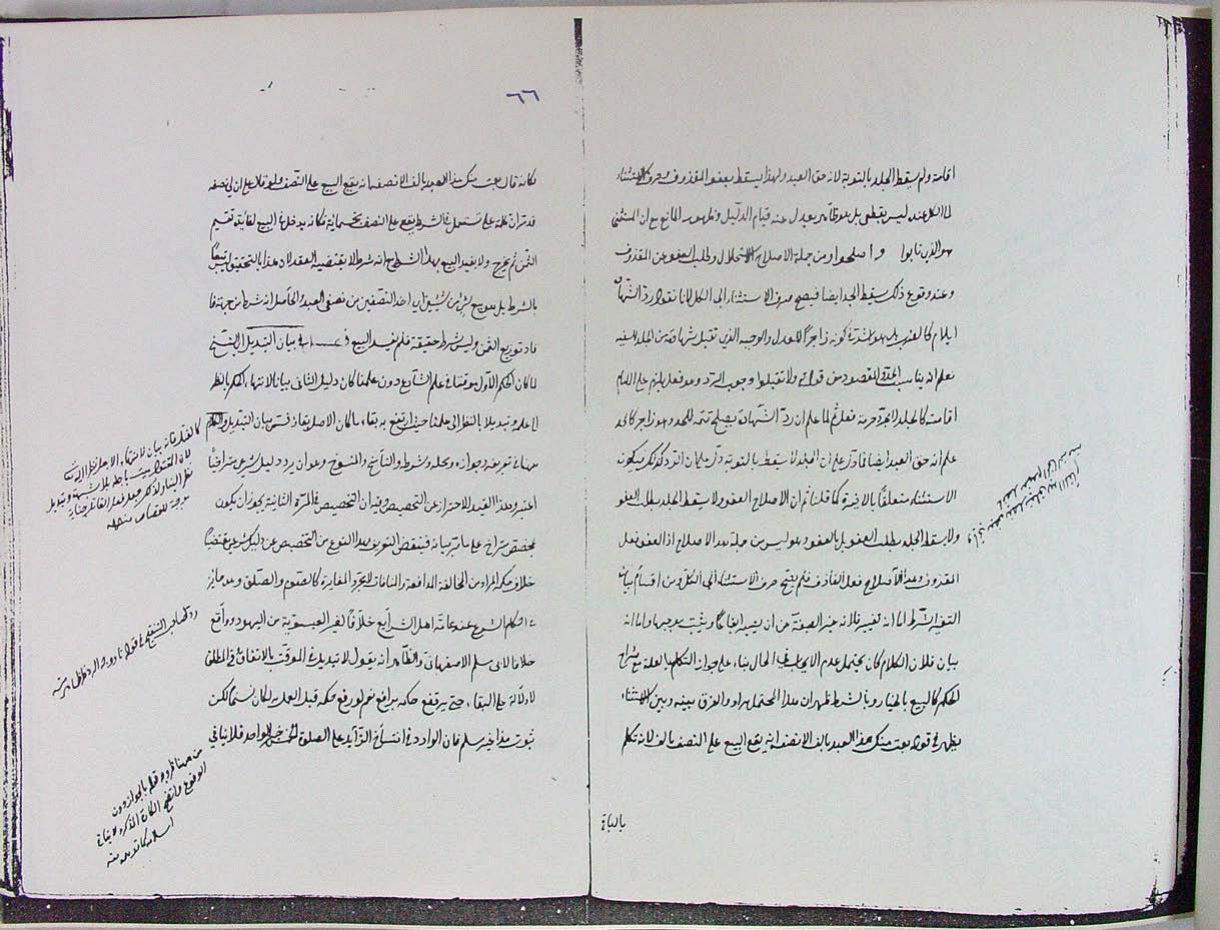 اقامة ولم يسقط الجلد بالتوبة لانه حق العبد ولهذا يسقط بعفو المقذوف وصرف الاستثناء
لما الكل عنده ليس بقطعي بل هو ظاهر يعدل عنه قيام الدليل وظهور المانع مع ان المستثنى
هو الذين تابوا واصلحوا ومن جملة الاصلاح الاستحلال وطلب العفو عن المقذوف
وعند وقوع ذلك يسقط الجلد ايضا فيصح صرف الاستثناء الى الكل لانا نقول رد الشهادة
ايلام كالضرب بل هو اشد في كونه زاجرا للعدل والوجيه الذي تقبل شهادته من الجلد
نعلم انه يناسب الحد والمقصود من قوله ولا تقبلوا وجوب الرد وهو فعل يلزم على الامام
اقامته كالجلد لا مجرد حرمة فعل ثم لما علم ان رد الشهادة يصلح تتمة للحد وهو زاجر كالحد
علم انه حق العبد ايضا علم ان الجلد لا يسقط بالتوبة دل على ان الرد كذلك فيكون
الاستثناء متعلقا بالاخيرة كما قلنا ثم ان الاصلاح العفو ولا يسقط الجلد بطلب العفو
ولا يسقط الجلد بطلب العفو بل بالعفو وهو ليس من جملة هذا الاصلاح اذ العفو فعل
المقذوف وهذا الاصلاح فعل القاذف فلم يصح صرف الاستثناء الى الكل ومن اقسام بيان
التغيير الشرط اما انه تغيير فلانه غير الصيغة من ان يصير ايقاعا ويثبت موجبها واما انه
بيان فلان الكلام كان يحتمل عدم الايجاب في الحال بناء على جواز التكلم بالعلة مع تراخ
الحكم كالبيع بالخيار وبالشرط ظهر ان هذا المحتمل مراد والفرق بينه وبين الاستثناء
يظهر في قوله بعت منك هذا العبد بالف الا نصفه انه يقع البيع على النصف بالف لانه تكلم
بالباقي
٦٦
فكانه قال بعت منك هذا العبد بالف الا نصفه انه يقع البيع على النصف ولو قال على ان لي نصفه
كلمة على تستعمل في الشرط يقع على النصف بخمسمائة فكانه يدخل في البيع لفائدة تقسيم
الثمن ثم يخرج ولا يفسد البيع بهذا الشرط مع انه شرط لا يقتضيه العقد لان هذا بالتحقيق ليس بيعا
بالشرط بل هو بيع شيء من شيئين اي احد النصفين من نصفي العبد والحاصل انه شرط من جهة
افاد توزيع الثمن وليس بشرط حقيقة فلم يفسد البيع فصل في بيان التبديل النسخ
لما كان الحكم الاول موقتا في علم الشارع دون علمنا كان دليل الثاني بيانا لانتهاء الحكم بالنظر
الى علمه وتبديلا بالنظر الى علمنا حيث ارتفع به بقاء ما كان الاصل بقاءه فسمي بيان التبديل والكلام
ههنا في تعريفه وجوازه ومحله وشرطه والناسخ والمنسوخ وهو ان يرد دليل شرعي متراخيا
اعتبر هذا القيد للاحتراز عن التخصيص وفيه ان التخصيص في المرة الثانية يجوز ان يكون
بمخصص متراخ على ما مر بيانه فينتقض التعريف بهذا النوع من التخصيص عن دليل شرعي مقتضيا
خلاف حكمه المراد من المخالفة المدافعة والمنافاة لا مجرد المغايرة كالصوم والصلوة وهو جائز
في احكام الشرع عند عامة اهل الشرايع خلافا لغير العيسوية من اليهود وواقع
خلافا لابي مسلم الاصفهاني والظاهر انه يقول لا تبديل في الموقت بالاتفاق وفي المطلق
لا دلالة على البقاء حتى يرفع حكمه برافع نعم لو رفع حكمه قبل العمل به لكان نسخا لكن
ثبوت هذا غير مسلم فان الوارد في انتساخ الزائد على الصلوة الخمس خبر الواحد فلا ينافي
كالقتل فانه بيان لانتهاء الاجل نظر الى
لان المقتول ميت باجله بلا شبهة وتبديل
نظر الينا
موجبة للقصاص منه
رد لصاحب التنقيح في قوله
من ههنا ظهر وجه قولهم بالجواز دون
الوقوع واتضح
اسلامه كما توهم منه